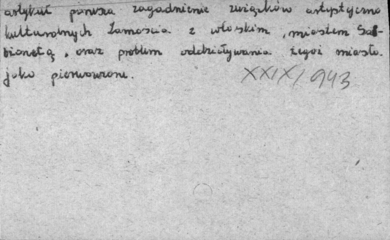 artykuł porusza zagadnienie związków artystyczno
kulturalnych Zamościa z włoskim, miastem Sab-
bionetą, oraz problem oddziaływania tegoż miasta
jako pierwowzoru.
XXIX/943